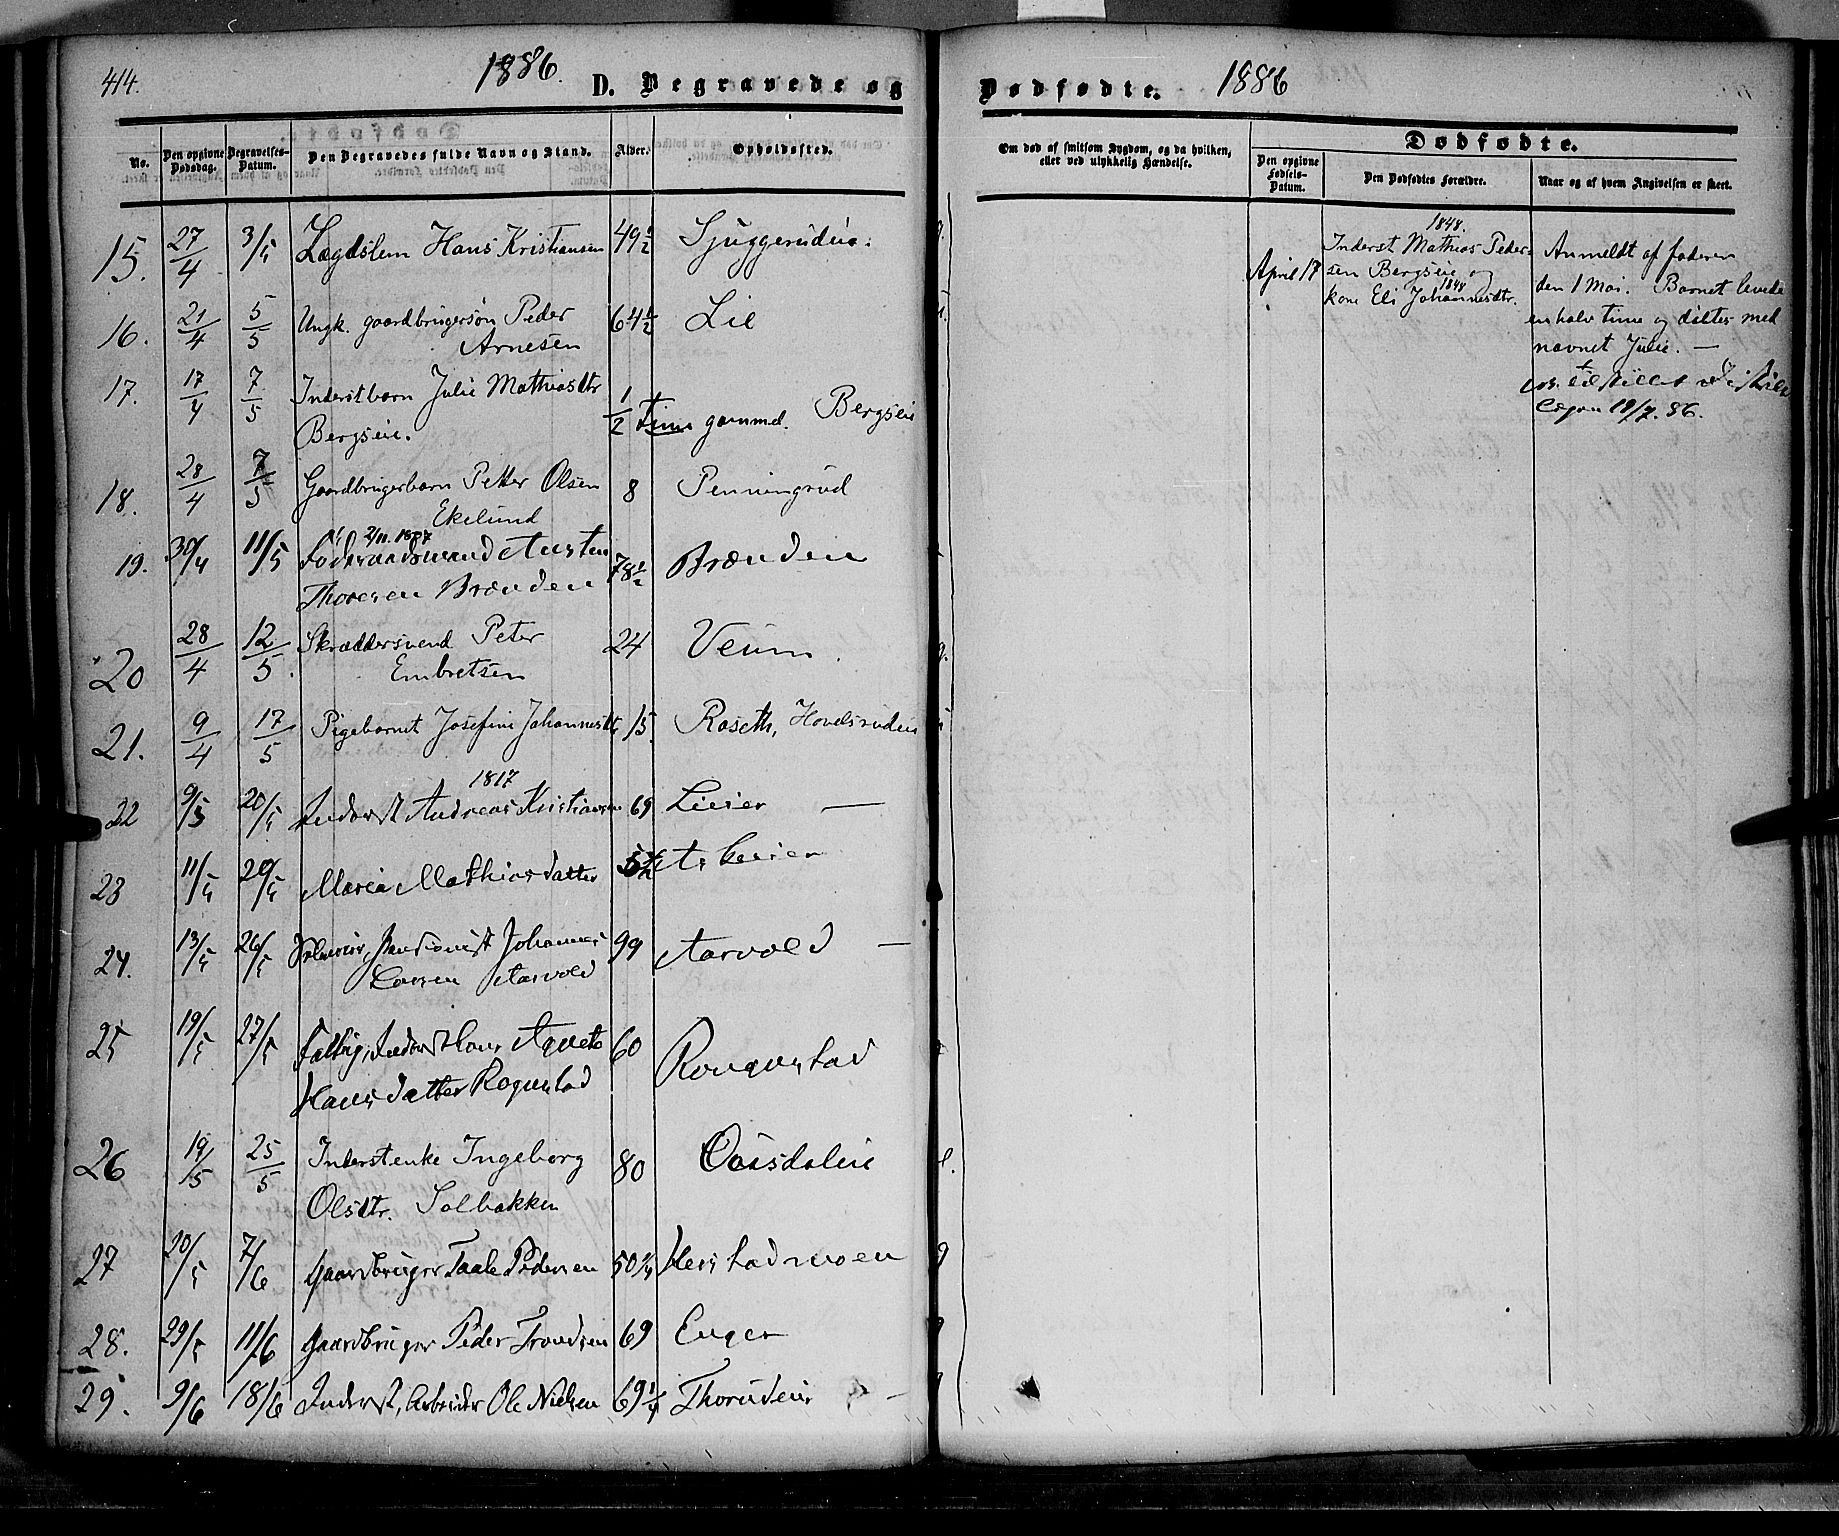 414.
1886.
D. Begravede og
No.
Den opgivne Dødsdag.
Begravelses-Datum.
Den Begravedes fulde Navn og Stand.
Alder.
Opholdssted.
15. 27/4 3/5 Lægdslem Hans Kristiansen 49 1/2
16. 21/4 5/5 Ungk. gaardbrugersøn Peder Arnesen 64 1/2 Lie
17. 17/4 7/5 Inderstbarn Julie Mathiasdtr Bergseie. 1/2 Time gammel. Bergseie
18. 28/4 7/5 Gaardbrugerbarn Petter Olsen Ekelund 8 Penningrud
19. 30/4 11/5 Føderaadsmand Austen Thoresen Brænden 78 1/2 Brænden
20 28/4 12/5. Skræddersvend Peter Embretsen 24 Veum.
21. 9/4 17/5 Pigebarnet Josefine Johannesdtr 15. Roseth, Hovelsrudeie
1817
22 9/5 20/5 Inderst Andreas Kristiansen 69 Lieier —
23 11/5 20/5 Maria Mathiasdatter
24. 13/5 26/5 Johannes Larsen Aarvold 99 Aarvold —
25 19/5 27/5 Hansdatter Rognstad 60
26 19/5 25/5 Inderstenke Ingeborg Olsdtr. Solbakken 80
27 20/5 7/6 Gaardbruger Taale Pedersen 50 1/4
28. 29/5 11/6 Gaardbruger Peder Trondsen 69 Enger
29. 9/6 18/6 Inderst, Arbeider Ole Nielsen 69 1/4 Thorudeie —
Dødfødte.
1886
Om død af smitsom Sygdom, og da hvilken,
eller ved ulykkelig Hændelse.
Dødfødte.
Den opgivne Fødsels-Datum.
Den Dødfødtes Forældre.
Naar og af hvem Angivelsen er skeet.
April 17
1848.
Inderst Mathias Peder-
sen Bergseie og
1848
kone Eli Johannesdtr.
Anmeldt af faderen
den 1 Mai. Barnet levede
en halv time og døbtes med
navnet Julie. —
19/7. 86.